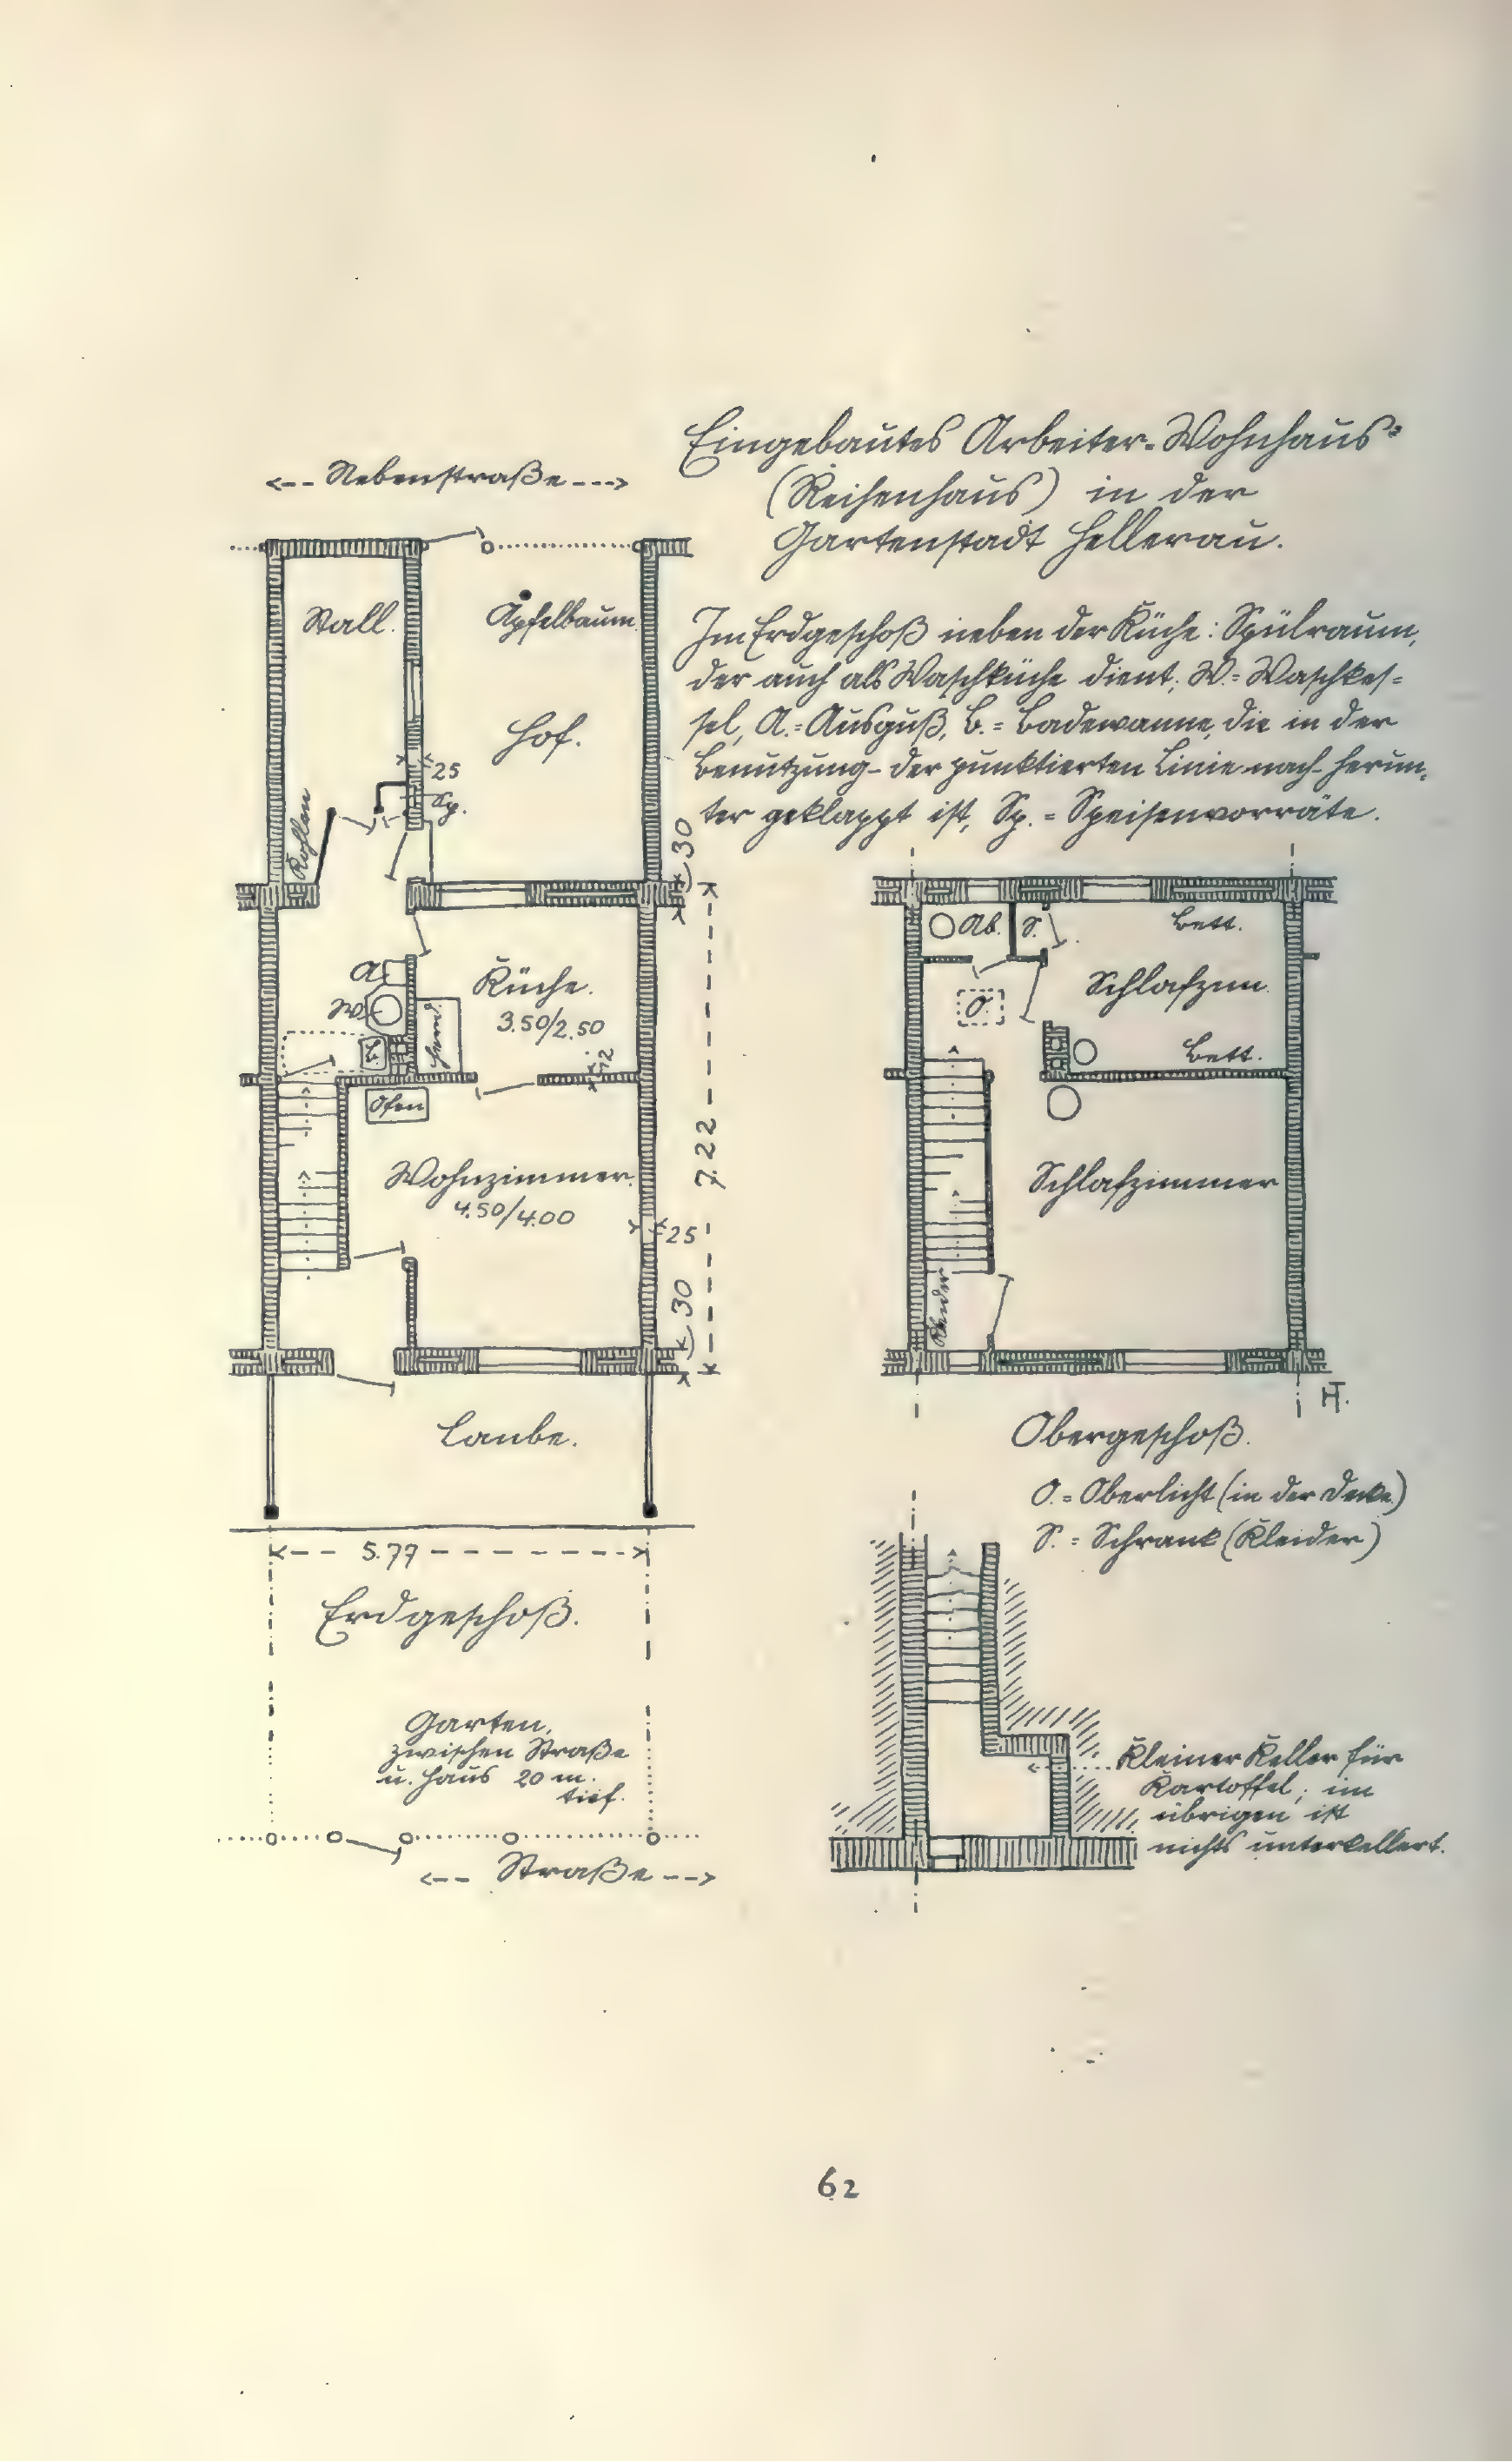 Eingebautes Arbeiter-Wohnhaus
(Reihenhaus) in der
Gartenstadt Hellerau.
Im Erdgeschoß neben der Küche: Spülraum,
der auch als Waschküche dient; W. = Waschkes=
sel, A. = Ausguß, B. = Badewanne, die in der
Benutzung - der punktierten Linie nach - herun=
ter geklappt ist, Sp. = Speisenvorräte.
<-- Nebenstraße --->
Stall.
Apfelbaum.
Hof.
25
Sp.
Kohlen
30
A.
W.
B.
Herd.
Küche.
3.50/2.50
12
Ofen
Wohnzimmer.
4.50/4.00
7.22
25
30
Laube.
5.77
Erdgeschoß.
Garten,
zwischen Straße
u. Haus 20 m.
tief.
<-- Straße -->
Ab.
S.
Bett.
O.
Schlafzim.
Bett.
Schlafzimmer
Kleider
H.
Obergeschoß.
O. = Oberlicht (in der Decke)
S. = Schrank (Kleider)
Kleiner Keller für
Kartoffel; im
übrigen ist
nichts unterkellert.
62